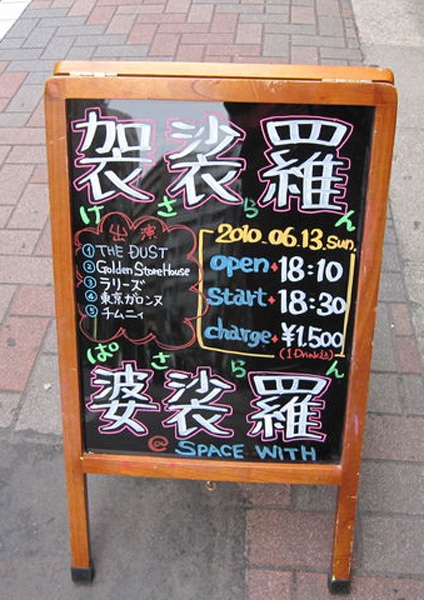 袈裟羅
けさらん
出演
① THE DUST
② Golden StoneHouse
③ ラリーズ
④ 東京ガロンヌ
⑤ チムニィ
2010.06.13.sun.
open・18:10
start・18:30
charge・¥1.500
(1Drink込)
ぱさらん
婆裟羅
@ SPACE WITH